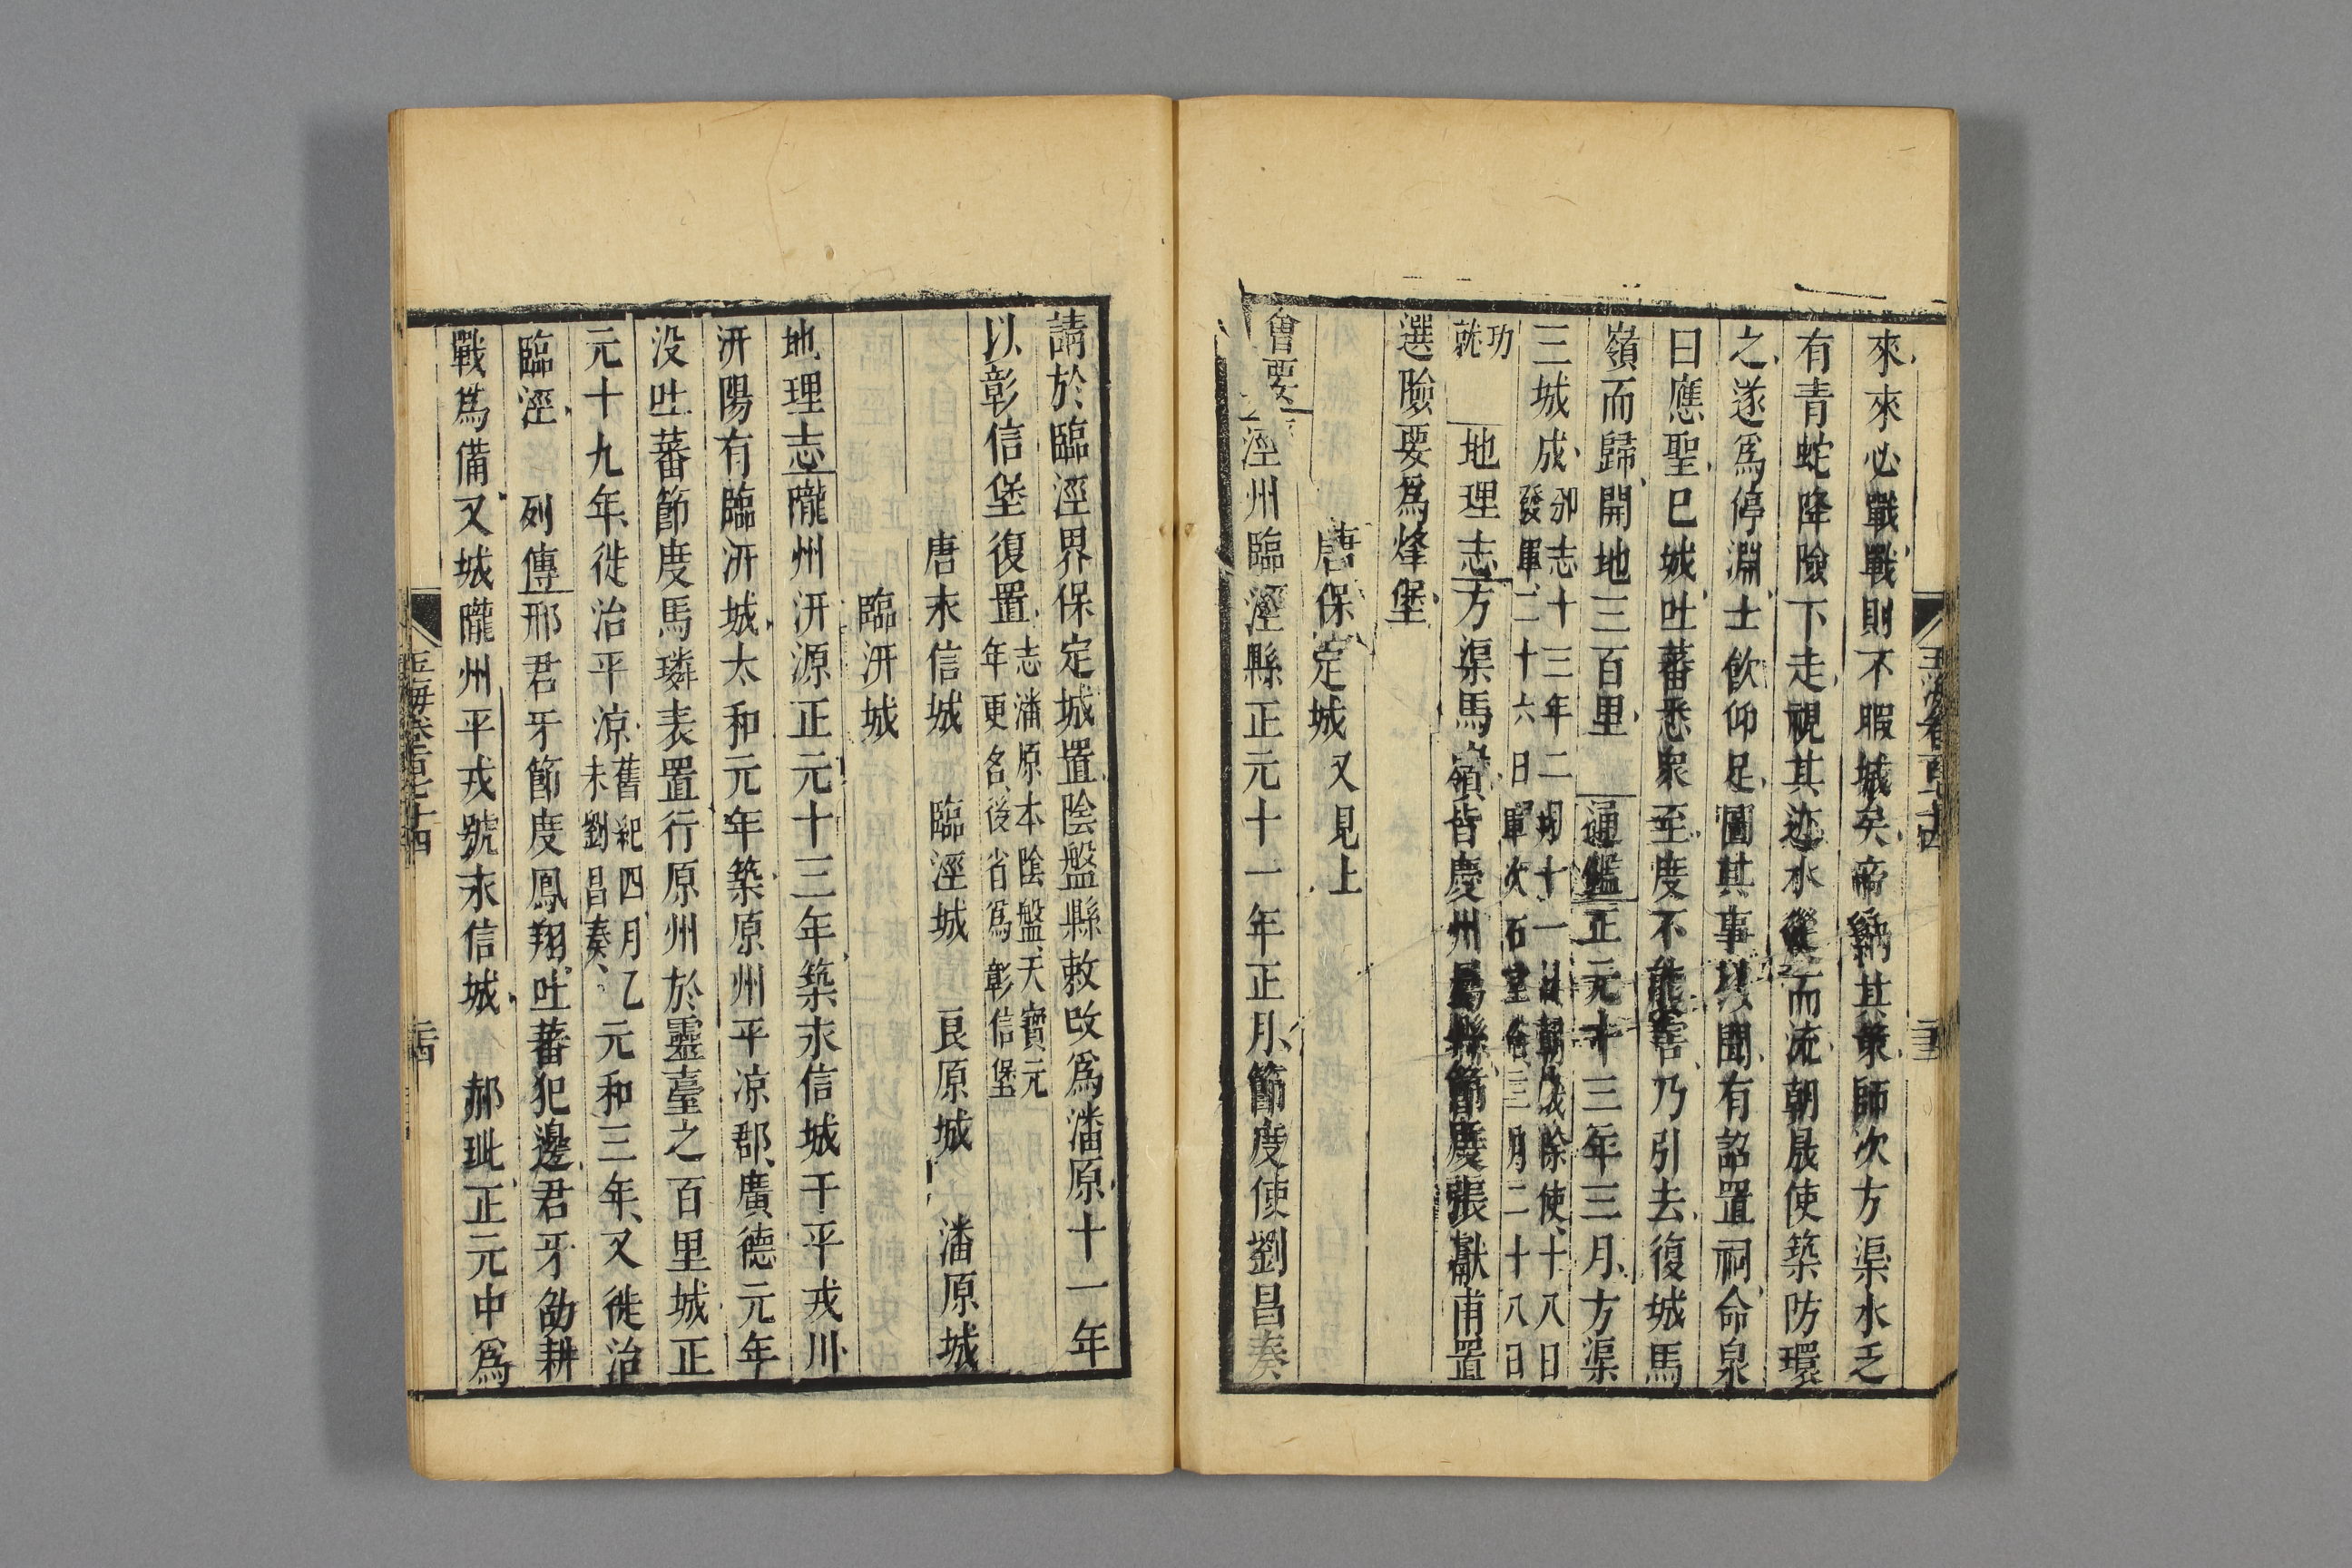 來來必戰戰則不暇城矣帝稱其策師次方渠水乏
有青蛇降險下走視其迹水從而流朝晟使築防環
之遂爲停淵士飲仰足圖其事以聞有詔置祠命泉
曰應聖巳城吐蕃悉衆至度不能害乃引去復城馬
嶺而歸開地三百里 通鑑正元十三年三月方渠
三城成邠志十三年二月十一日朝晟除使十八日
發軍二十六日軍次石堂谷三月二十八日
功
就 地理志方渠馬嶺皆慶州屬縣節度張獻甫置
選險要爲烽堡
唐保定城 又見上
會要涇州臨涇縣正元十一年正月節度使劉昌奏
請於臨涇界保定城置陰盤縣敕改爲潘原十一年
以彰信堡復置志潘原本陰盤天寶元
年更名後省爲彰信堡
唐永信城 臨涇城 良原城 潘原城
臨汧城
地理志隴州汧源正元十三年築永信城于平戎川
汧陽有臨汧城太和元年築原州平凉郡廣德元年
没吐蕃節度馬璘表置行原州於靈臺之百里城正
元十九年徙治平凉舊紀四月乙
未劉昌奏元和三年又徙治
臨涇 列傳邢君牙節度鳳翔吐蕃犯邊君牙劭耕
戰爲備又城隴州平戎號永信城 郝玼正元中爲
玉海卷百七十四